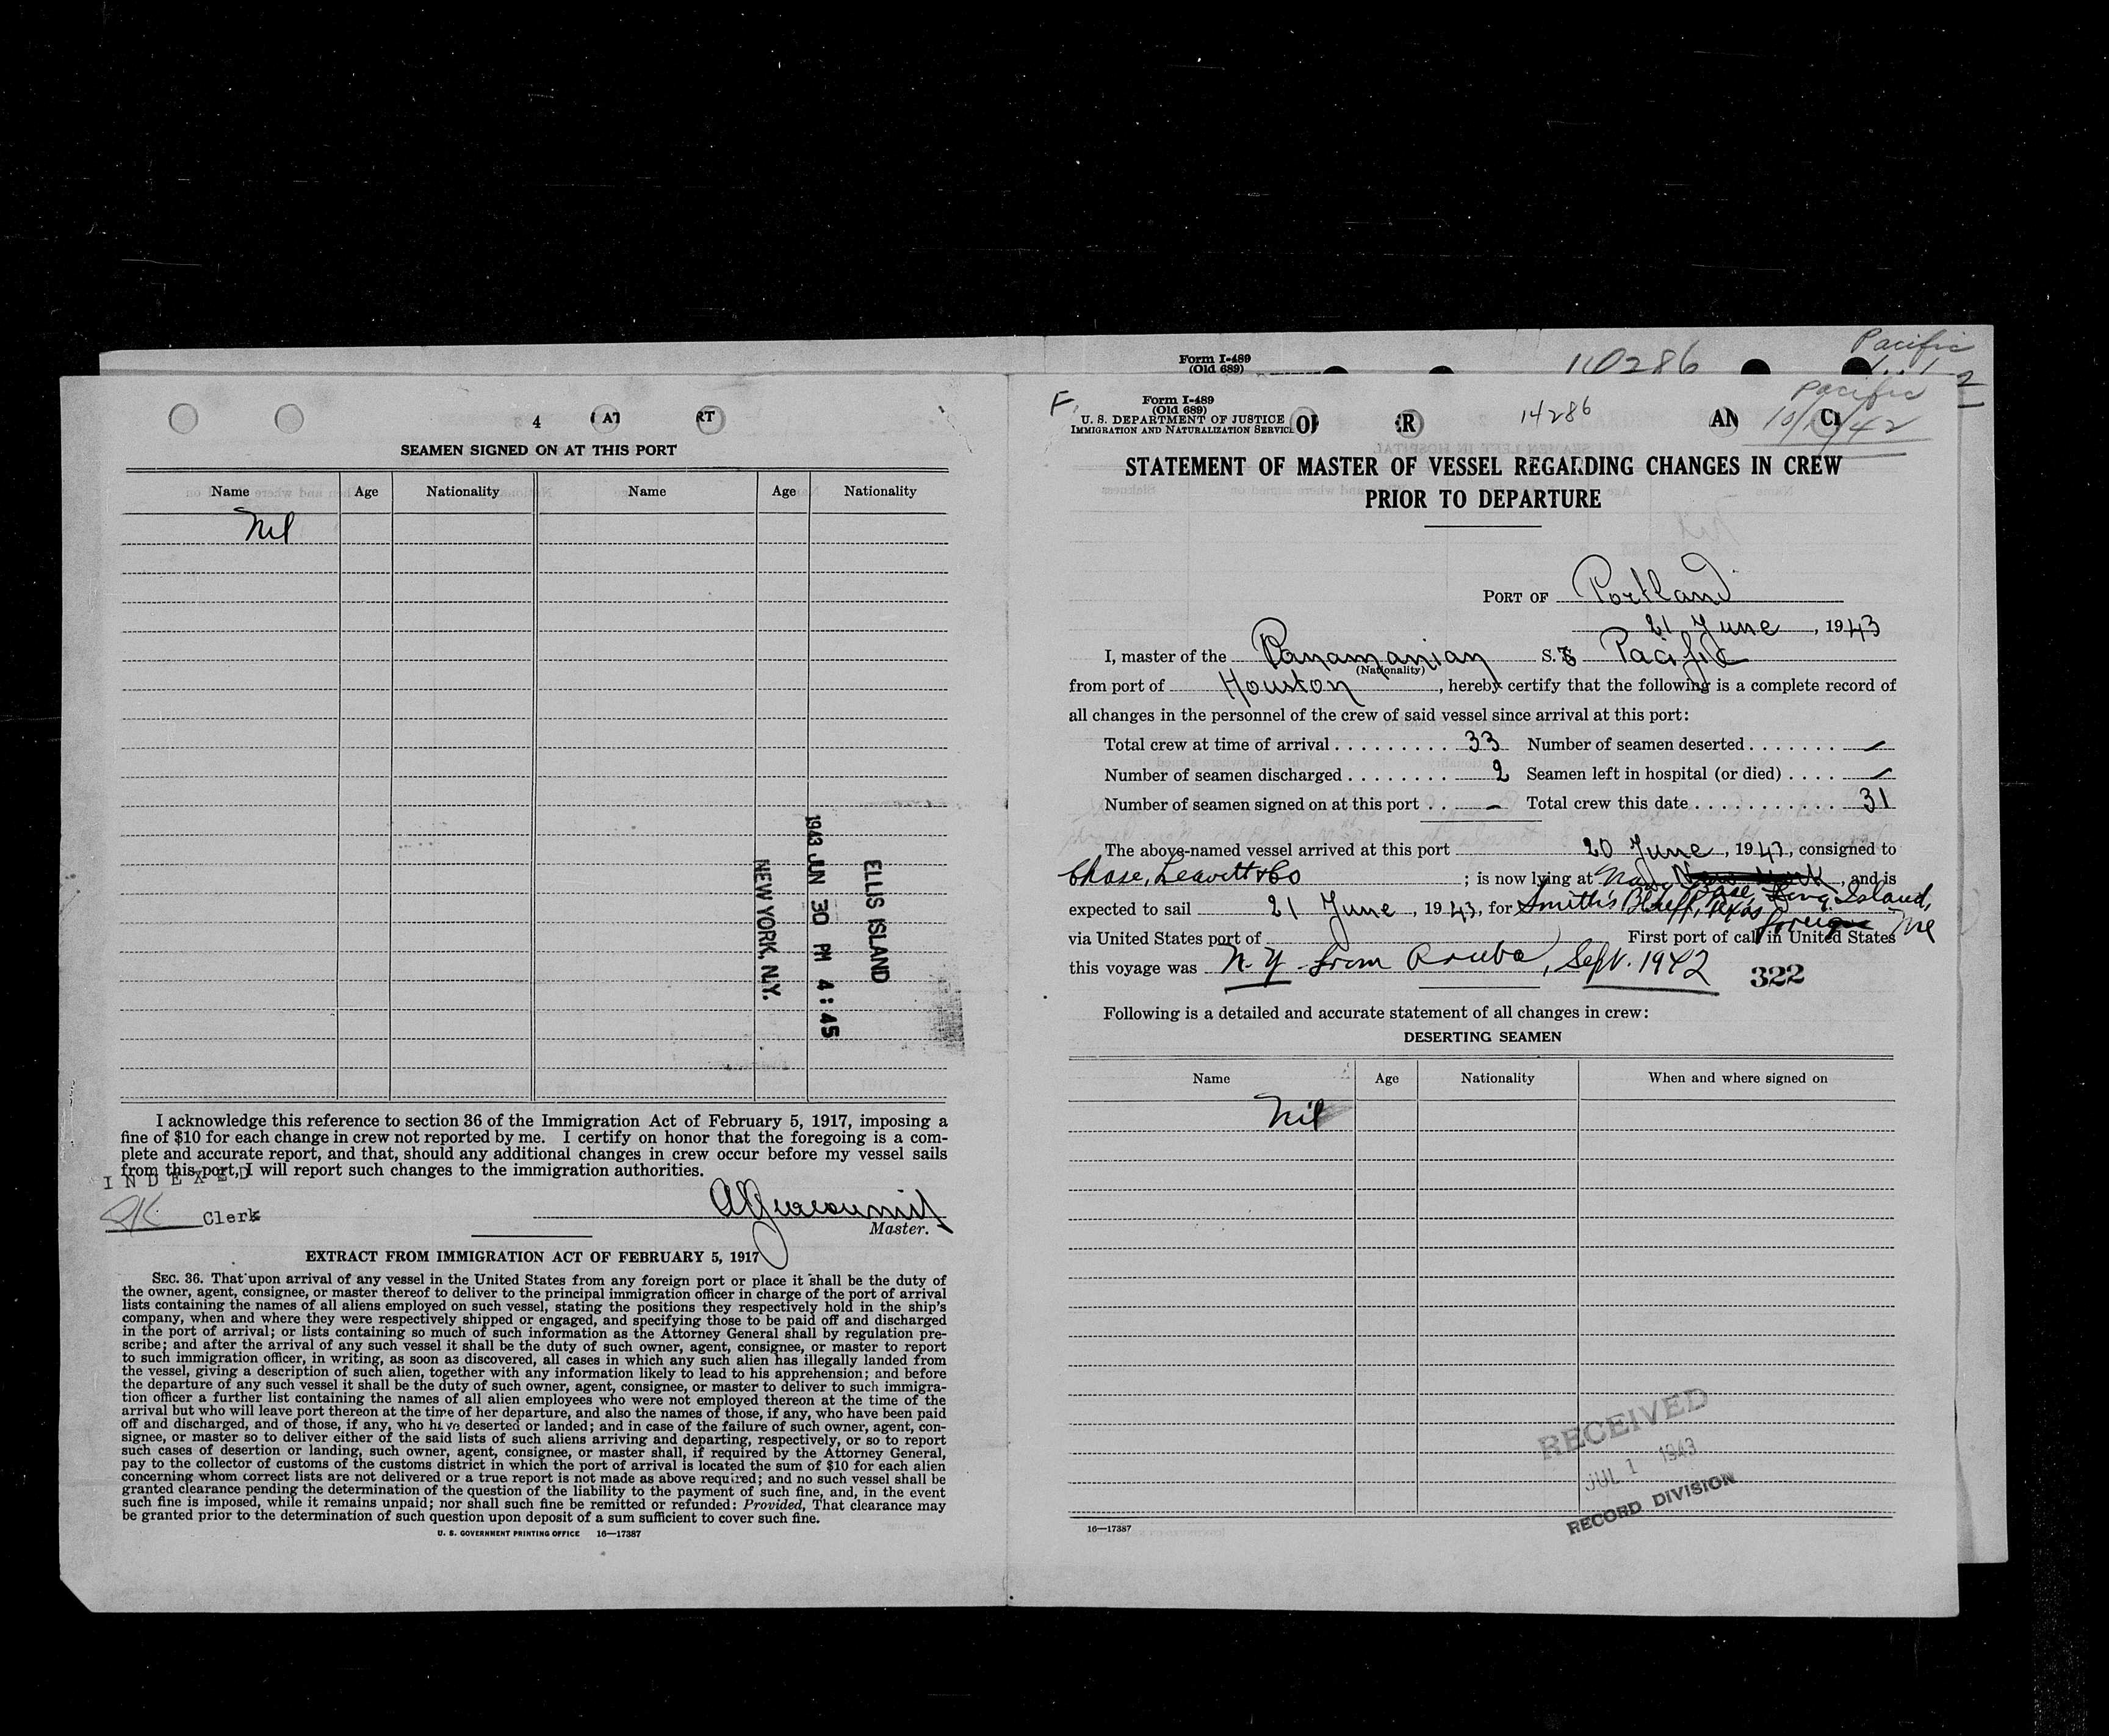 Form I-489
(Old 689)
110286
Pacific
4
AT
RT
SEAMEN SIGNED ON AT THIS PORT
Name Age Nationality Name Age Nationality
Nil
1943 JUN 30 PM 4:45
ELLIS ISLAND
NEW YORK, N.Y.
I acknowledge this reference to section 36 of the Immigration Act of February 5, 1917, imposing a
fine of $10 for each change in crew not reported by me. I certify on honor that the foregoing is a com-
plete and accurate report, and that, should any additional changes in crew occur before my vessel sails
from this port, I will report such changes to the immigration authorities.
INDEXED
Clerk
Master.
EXTRACT FROM IMMIGRATION ACT OF FEBRUARY 5, 1917
SEC. 36. That upon arrival of any vessel in the United States from any foreign port or place it shall be the duty of
the owner, agent, consignee, or master thereof to deliver to the principal immigration officer in charge of the port of arrival
lists containing the names of all aliens employed on such vessel, stating the positions they respectively hold in the ship's
company, when and where they were respectively shipped or engaged, and specifying those to be paid off and discharged
in the port of arrival; or lists containing so much of such information as the Attorney General shall by regulation pre-
scribe; and after the arrival of any such vessel it shall be the duty of such owner, agent, consignee, or master to report
to such immigration officer, in writing, as soon as discovered, all cases in which any such alien has illegally landed from
the vessel, giving a description of such alien, together with any information likely to lead to his apprehension; and before
the departure of any such vessel it shall be the duty of such owner, agent, consignee, or master to deliver to such immigra-
tion officer a further list containing the names of all alien employees who were not employed thereon at the time of the
arrival but who will leave port thereon at the time of her departure, and also the names of those, if any, who have been paid
off and discharged, and of those, if any, who have deserted or landed; and in case of the failure of such owner, agent, con-
signee, or master so to deliver either of the said lists of such aliens arriving and departing, respectively, or so to report
such cases of desertion or landing, such owner, agent, consignee, or master shall, if required by the Attorney General,
pay to the collector of customs of the customs district in which the port of arrival is located the sum of $10 for each alien
concerning whom correct lists are not delivered or a true report is not made as above required; and no such vessel shall be
granted clearance pending the determination of the question of the liability to the payment of such fine, and, in the event
such fine is imposed, while it remains unpaid; nor shall such fine be remitted or refunded: Provided, That clearance may
be granted prior to the determination of such question upon deposit of a sum sufficient to cover such fine.
U. S. GOVERNMENT PRINTING OFFICE 16—17387
F.
Form I-489
(Old 689)
U. S. DEPARTMENT OF JUSTICE
IMMIGRATION AND NATURALIZATION SERVICE
14286
Pacific
STATEMENT OF MASTER OF VESSEL REGARDING CHANGES IN CREW
PRIOR TO DEPARTURE
PORT OF Portland
21 June, 1943
I, master of the Panamanian S.S. Pacific
(Nationality)
from port of Houston, hereby certify that the following is a complete record of
all changes in the personnel of the crew of said vessel since arrival at this port:
Total crew at time of arrival . . . . . . . . . 33 Number of seamen deserted . . . . . . . —
Number of seamen discharged . . . . . . . . 2 Seamen left in hospital (or died) . . . . —
Number of seamen signed on at this port . . — Total crew this date . . . . . . . . . . . 31
The above-named vessel arrived at this port 20 June, 1943, consigned to
Chase, Leavitt & Co ; is now lying at Navy Base, Long Island, Me, and is
expected to sail 21 June, 1943, for Smith's Bluff, Texas
via United States port of foreign First port of call in United States
this voyage was N.Y. from Aruba, Sept. 1942
322
Following is a detailed and accurate statement of all changes in crew:
DESERTING SEAMEN
Name Age Nationality When and where signed on
Nil
RECEIVED
JUL 1 1943
RECORD DIVISION
16—17387